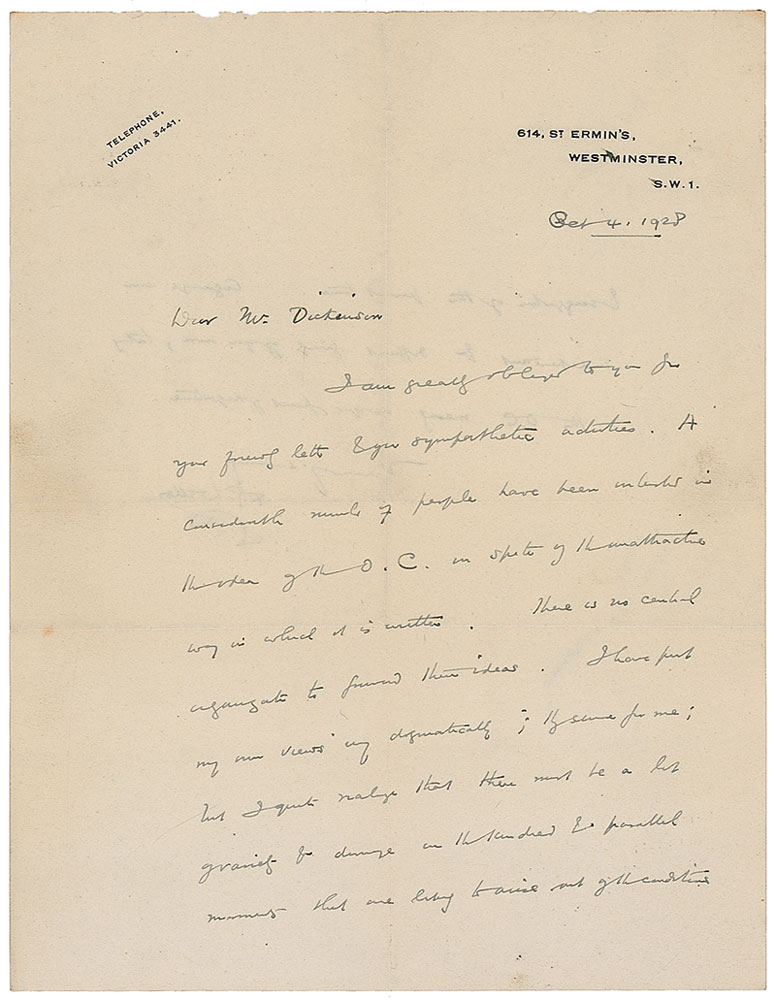 TELEPHONE,
VICTORIA 3441.
614, ST ERMIN'S,
WESTMINSTER,
S.W.1.
Oct 4. 1928
Dear Mr. Dickenson
I am greatly obliged to you for
your friendly letter & your sympathetic activities. A
considerable number of people have been interested in
the idea of the O.C. in spite of the unattractive
way in which it is written. There is no central
organization to forward these ideas. I have put
my own views very dogmatically; they serve for me;
but I quite realize that there must be a lot
of variety & in the kindred & parallel
movements that are likely to arise out of the conditions